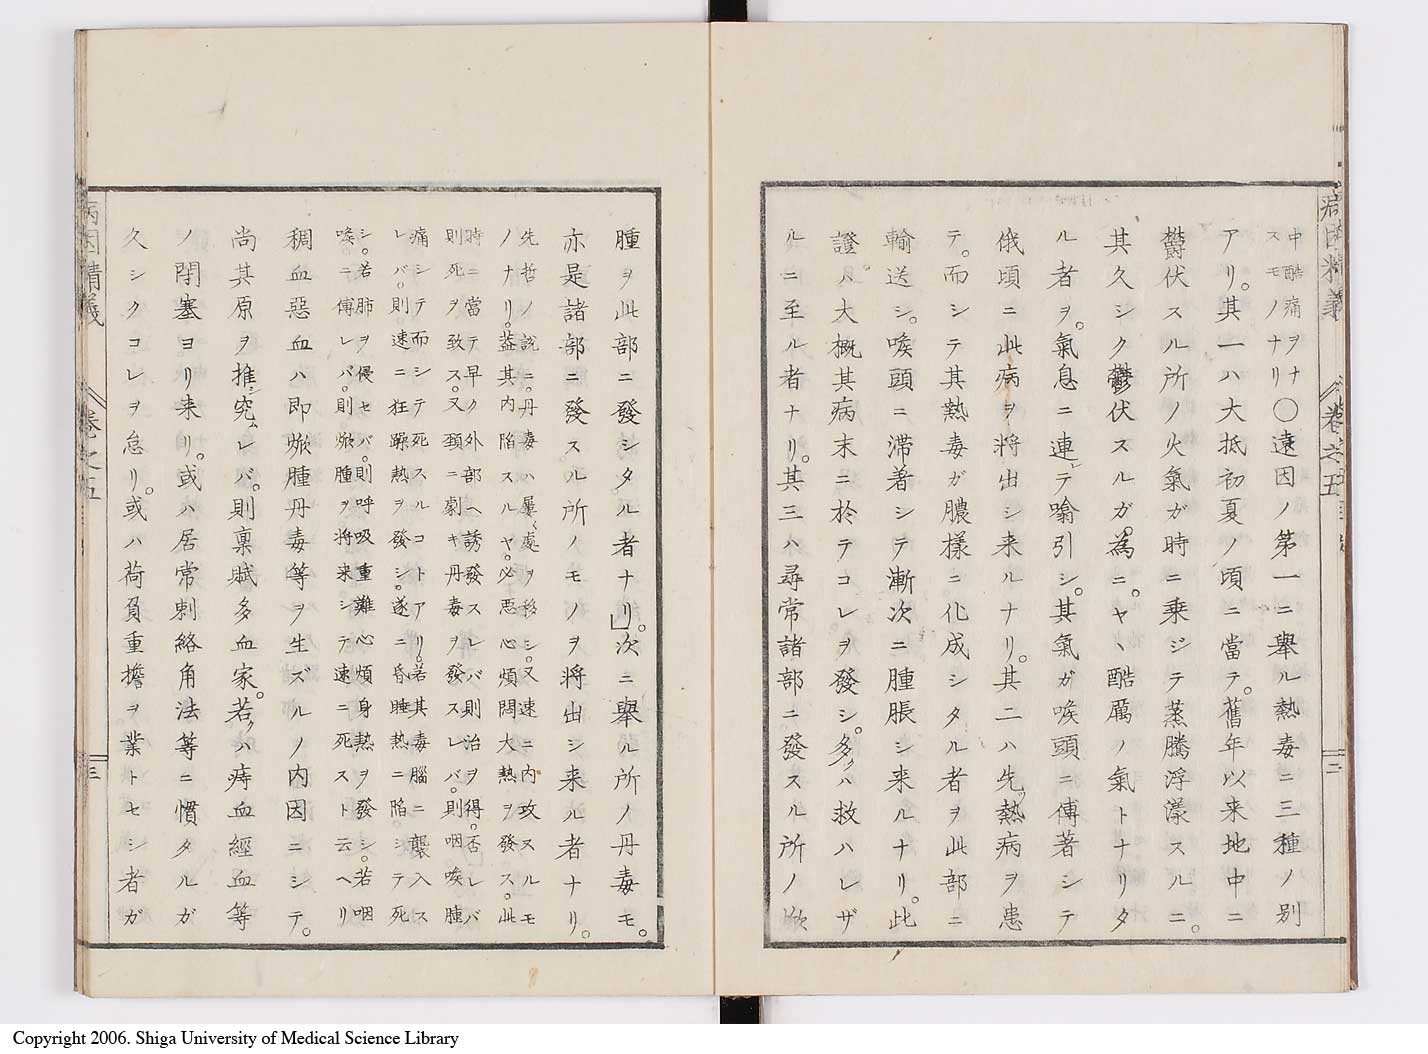 病因精義 卷之五 二
中酷痛ヲナ
スモノナリ
○遠因ノ第一ニ舉ル熱毒ニ三種ノ別
アリ。其一ハ大抵初夏ノ頃ニ當テ。舊年以来地中ニ
欝伏スル所ノ火氣ガ時ニ乗ジテ蒸騰浮漾スルニ。
其久シク欝伏スルガ。為ニ。ヤヽ酷厲ノ氣トナリタ
ル者ヲ。氣息ニ連レテ喻引シ。其氣ガ喉頭ニ傳著シテ
俄頃ニ此病ヲ將出シ来ルナリ。其二ハ先ヅ熱病ヲ患
テ。而シテ其熱毒ガ膿樣ニ化成シタル者ヲ此部ニ
輸送シ。喉頭ニ滯著シテ漸次ニ腫脹シ来ルナリ。此
證ハ。大概其病末ニ於テコレヲ發シ。多クハ救ハレザ
ルニ至ル者ナリ。其三ハ尋常諸部ニ發スル所ノ焮
腫ヲ此部ニ發シタル者ナリ。次ニ舉ル所ノ丹毒モ。
亦是諸部ニ發スル所ノモノヲ將出シ来ル者ナリ。
先哲ノ說ニ。丹毒ハ屢〻處ヲ移シ。又速ニ内攻スルモ
ノナリ。蓋其内陷スルヤ。必惡心煩悶大熱ヲ發ス。此
時ニ當テ早ク外部ヘ誘發スレバ則治ヲ得。否レバ
則死ヲ致ス。又頚ニ劇キ丹毒ヲ發スレバ。則咽喉腫
痛シテ而シテ死スルコトアリ。若其毒腦ニ襲入ス
レバ。則速ニ狂躁熱ヲ發シ。遂ニ昏睡熱ニ陷。シテ死
シ。若肺ヲ侵セバ。則呼吸重難心煩身熱ヲ發シ。若咽
喉ニ傳レバ。則焮腫ヲ將来シテ速ニ死スト云ヘリ
稠血惡血ハ即焮腫丹毒等ヲ生ズルノ内因ニシテ。
尚其原ヲ推シ究ムレバ。則禀賦多血家。若クハ痔血經血等
ノ閉塞ヨリ来リ。或ハ居常刺絡角法等ニ慣タルガ
久シクコレヲ怠リ。或ハ荷負重擔ヲ業トセシ者ガ
病因精義 卷之五 三
Copyright 2006. Shiga University of Medical Science Library